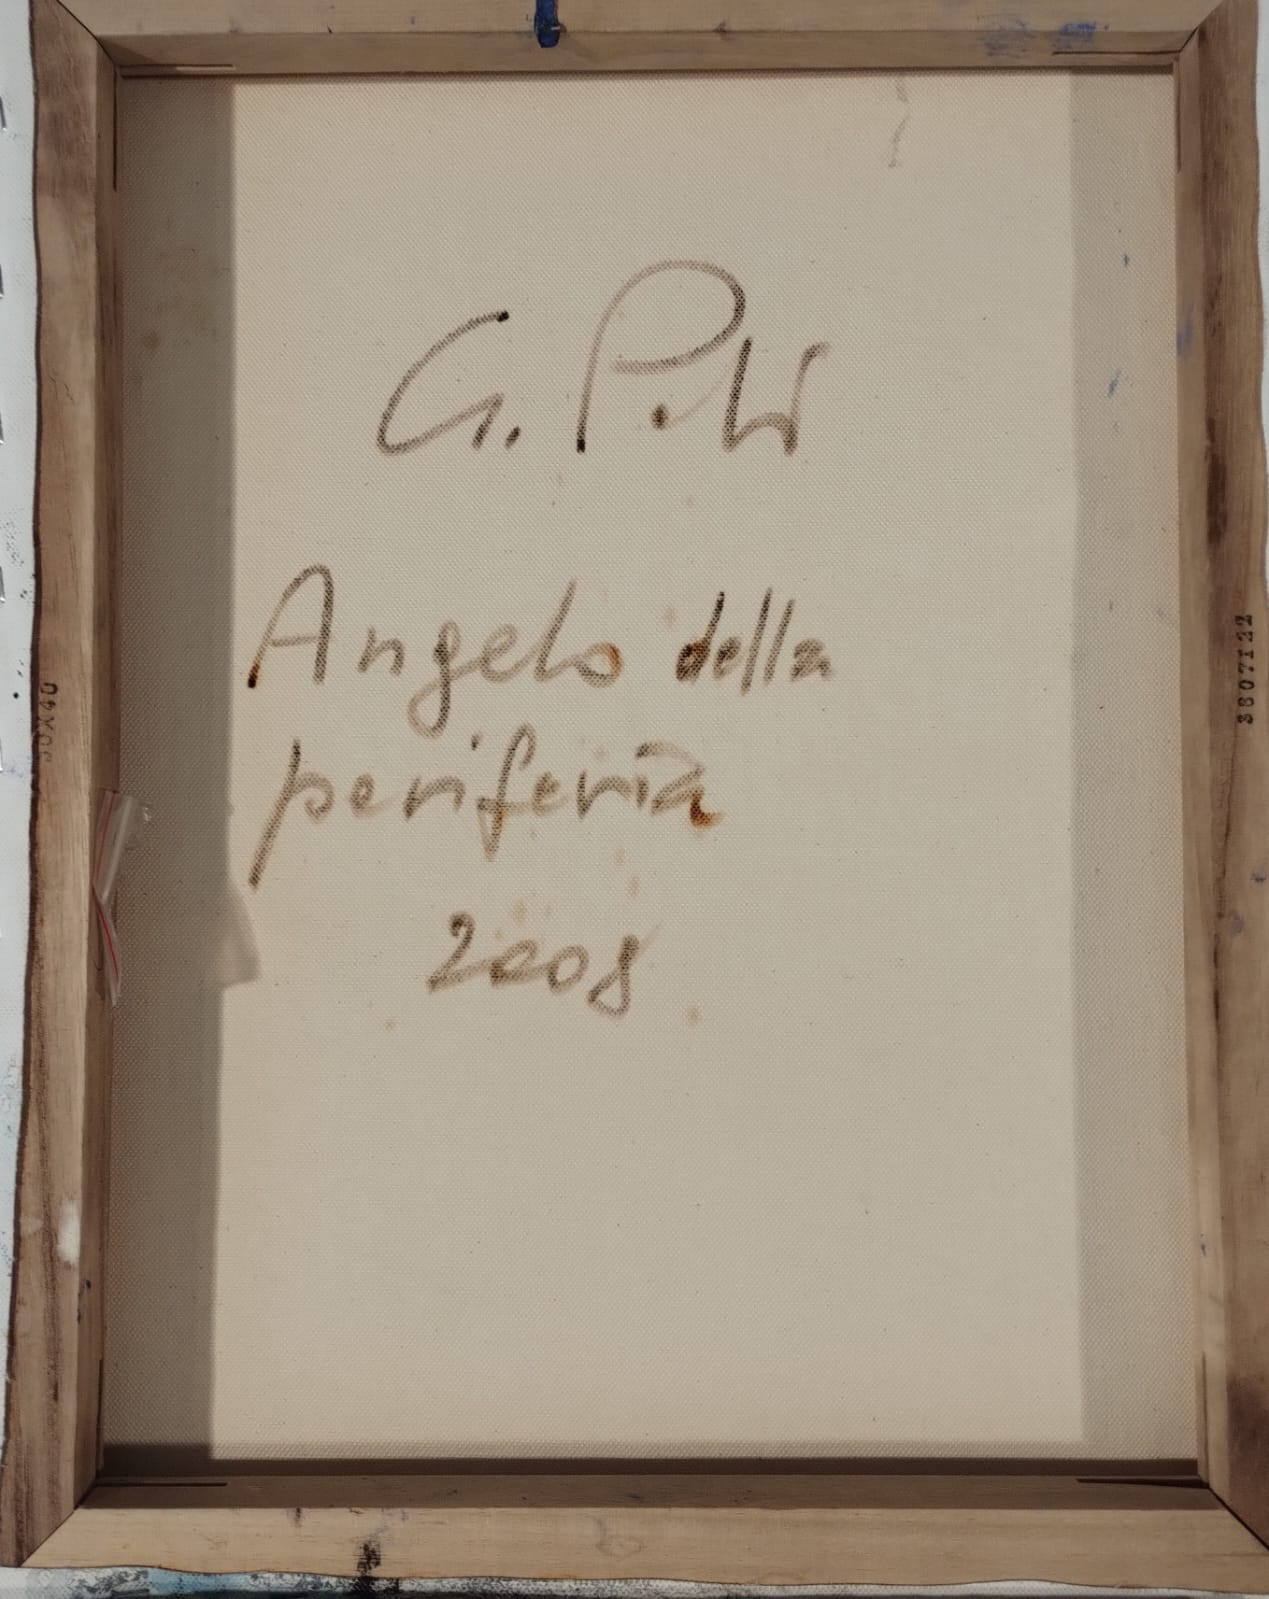 Angelo della
periferia
2008
30X40
3607122